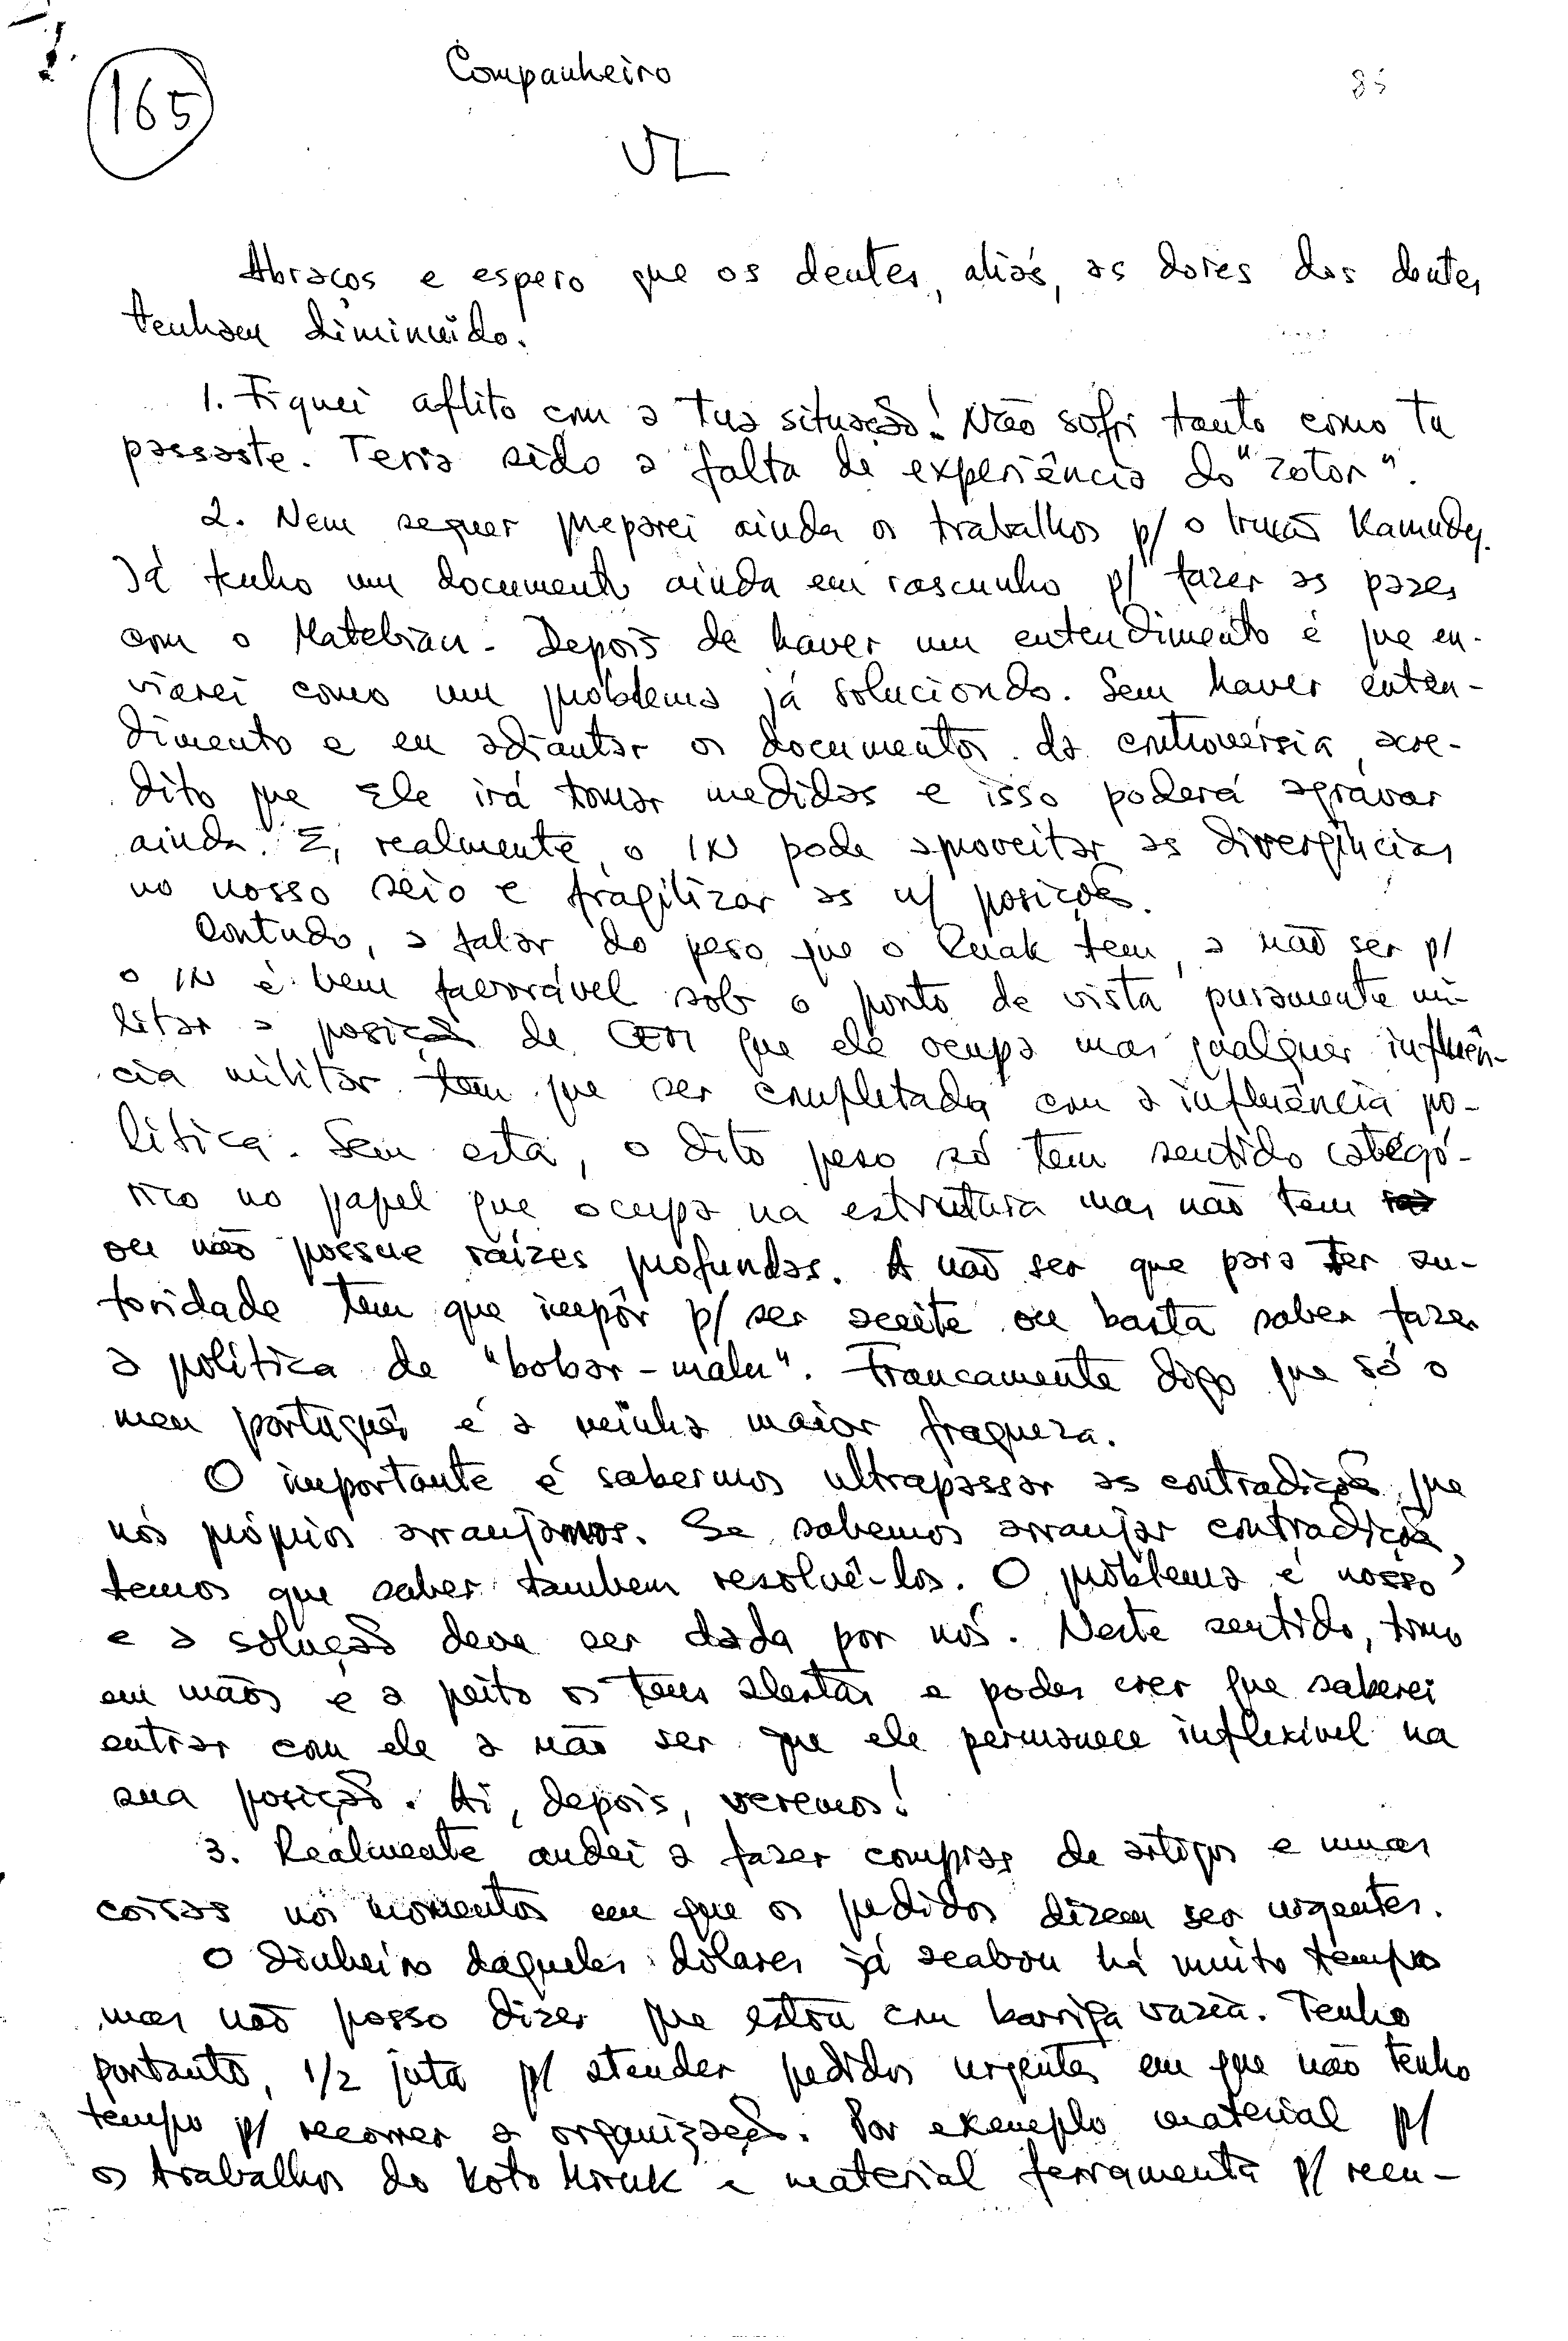 165
Companheiro
85
VL
Abraços e espero que os dentes, aliás, as dores dos dentes
tenham diminuido.
1. Fiquei aflito com a tua situação! Não sofri tanto como tu
passaste. Teria sido a falta de experiência do "rotor".
2. Nem sequer preparei ainda os trabalhos p/ o Irmão Kamudy.
Já tenho um documento ainda em rascunho p/ fazer as pazes
com o Matebian. Depois de haver um entendimento é que en-
viarei como um problema já soluciondo. Sem haver enten-
dimento e eu adiantar os documentos da controvérsia, acre-
dito que Ele irá tomar medidas e isso poderá agravar
ainda. E, realmente, o IN pode aproveitar as divergências
no nosso seio e fragilizar as n/ posições.
Contudo, a falar do peso que o Ruak tem, a não ser p/
o IN é bem favorável sob o ponto de vista puramente mi-
litar a posição de CEM que ele ocupa mas qualquer influên-
cia militar tem que ser completada com a influência po-
lítica. Sem esta, o dito peso só tem sentido categó-
rico no papel que ocupa na estrutura mas não tem
ou não possue raízes profundas. A não ser que para ter au-
toridade tem que impôr p/ ser aceite ou basta saber fazer
a política de "bobar-malu". Francamente digo que só o
meu português é a minha maior fraqueza.
O importante é sabermos ultrapassar as contradições que
nós próprios arranjamos. Se sabemos arranjar contradições,
temos que saber tambem resolvê-los. O problema é nosso
e a solução deve ser dada por nós. Neste sentido, tomo
em mãos e a peito os teus alertas e podes crer que saberei
entrar com ele a não ser que ele permanece inflexível na
sua posição. Aí, depois, veremos!
3. Realmente andei a fazer compras de artigos e umas
coisas nos momentos em que os pedidos dizem ser urgentes.
O dinheiro daqueles dólares já acabou há muito tempo
mas não posso dizer que estou com barriga vazia. Tenho
portanto, 1/2 juta p/ atender pedidos urgentes em que não tenho
tempo p/ recorrer a organização. Por exemplo material p/
os trabalhos do Koto Moruk e material ferramenta p/ reen-